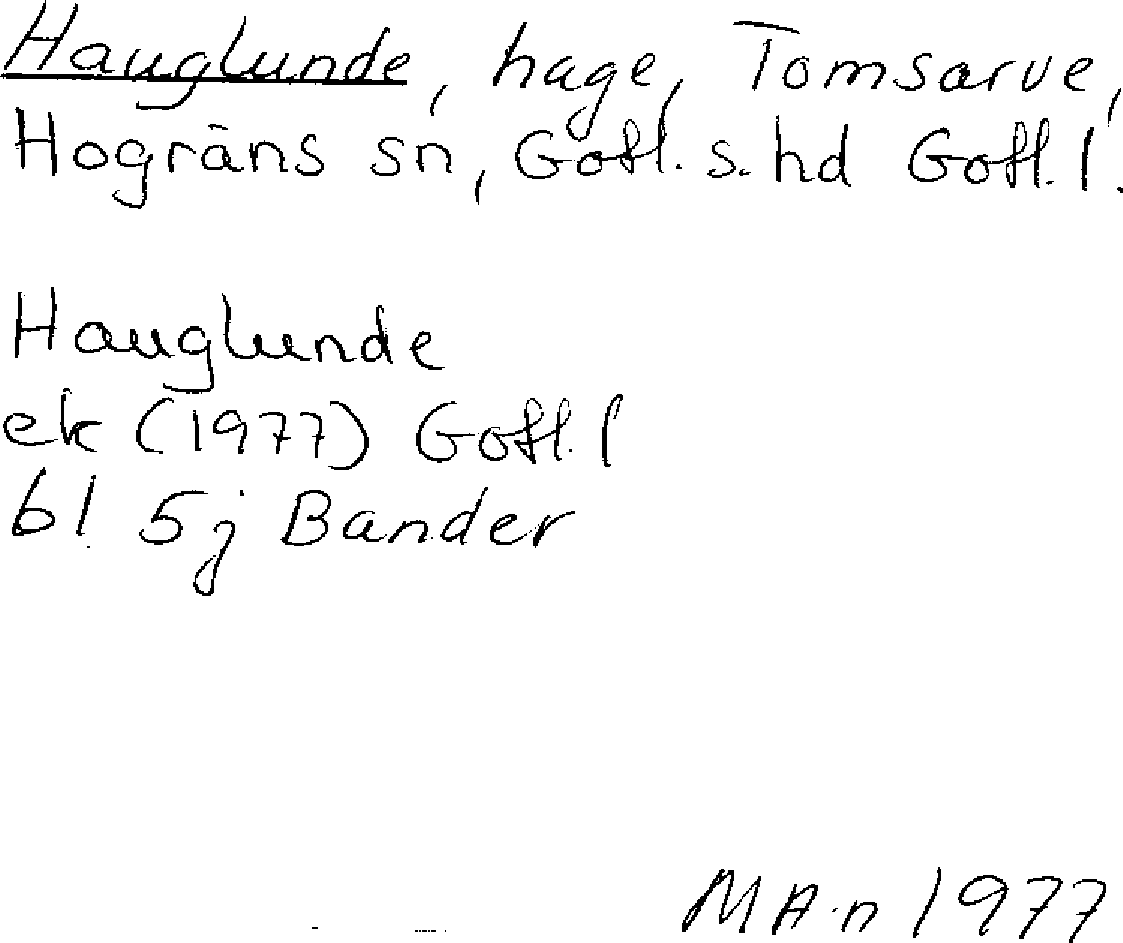 Hauglunde, hage, Tomsarve,
Hogräns sn, Gotl. s. hd Gotl. l.
Hauglunde
ek (1977) Gotl. l
bl. 5j Bander
MA.n 1977